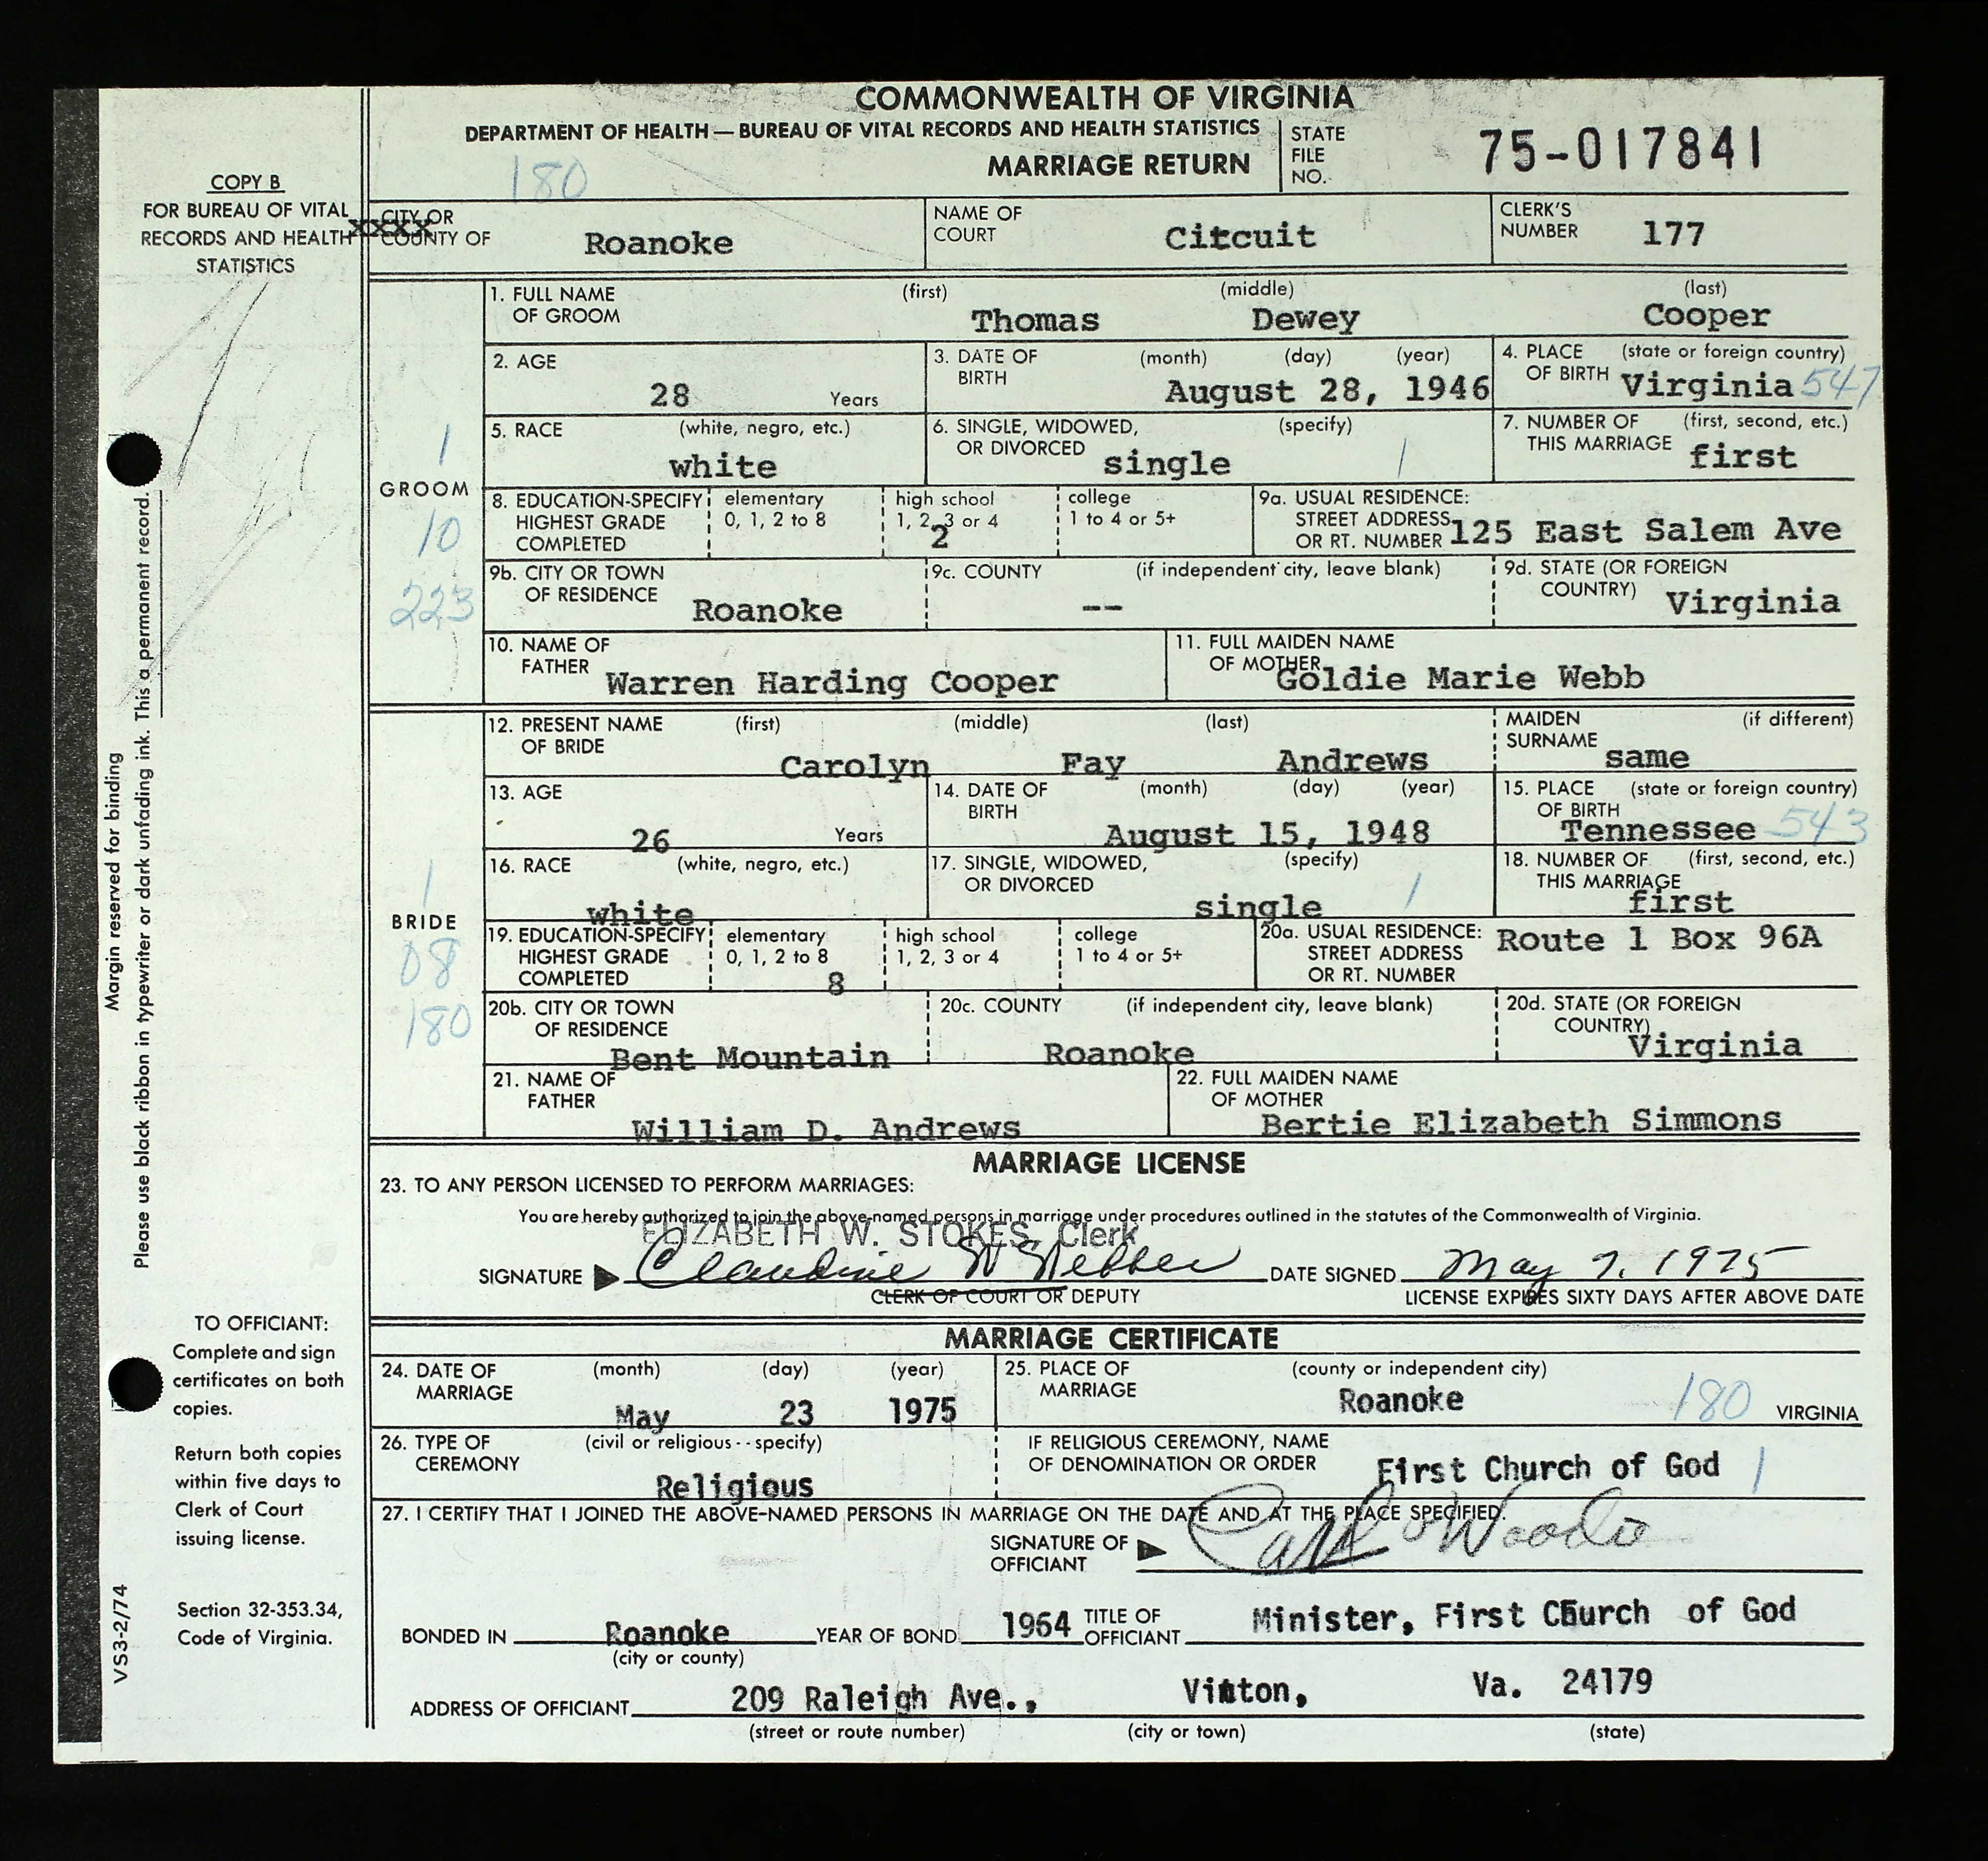 COMMONWEALTH OF VIRGINIA
DEPARTMENT OF HEALTH — BUREAU OF VITAL RECORDS AND HEALTH STATISTICS
MARRIAGE RETURN
180
STATE FILE NO. 75-017841
COPY B
FOR BUREAU OF VITAL
RECORDS AND HEALTH
STATISTICS
xxxx
CITY OR
COUNTY OF Roanoke
NAME OF COURT Citcuit
CLERK'S NUMBER 177
GROOM
1
10
223
1. FULL NAME OF GROOM (first) (middle) (last)
Thomas Dewey Cooper
2. AGE 28 Years
3. DATE OF BIRTH (month) (day) (year)
August 28, 1946
4. PLACE OF BIRTH (state or foreign country)
Virginia 547
5. RACE (white, negro, etc.)
white
6. SINGLE, WIDOWED, OR DIVORCED (specify)
single 1
7. NUMBER OF THIS MARRIAGE (first, second, etc.)
first
8. EDUCATION-SPECIFY HIGHEST GRADE COMPLETED
elementary 0, 1, 2 to 8
high school 1, 2, 3 or 4
2
college 1 to 4 or 5+
9a. USUAL RESIDENCE: STREET ADDRESS OR RT. NUMBER 125 East Salem Ave
9b. CITY OR TOWN OF RESIDENCE Roanoke
9c. COUNTY (if independent city, leave blank)
--
9d. STATE (OR FOREIGN COUNTRY) Virginia
10. NAME OF FATHER Warren Harding Cooper
11. FULL MAIDEN NAME OF MOTHER Goldie Marie Webb
BRIDE
1
08
180
12. PRESENT NAME OF BRIDE (first) (middle) (last)
Carolyn Fay Andrews
MAIDEN SURNAME (if different)
same
13. AGE 26 Years
14. DATE OF BIRTH (month) (day) (year)
August 15, 1948
15. PLACE OF BIRTH (state or foreign country)
Tennessee 543
16. RACE (white, negro, etc.)
white
17. SINGLE, WIDOWED, OR DIVORCED (specify)
single 1
18. NUMBER OF THIS MARRIAGE (first, second, etc.)
first
19. EDUCATION-SPECIFY HIGHEST GRADE COMPLETED
elementary 0, 1, 2 to 8
8
high school 1, 2, 3 or 4
college 1 to 4 or 5+
20a. USUAL RESIDENCE: STREET ADDRESS OR RT. NUMBER Route 1 Box 96A
20b. CITY OR TOWN OF RESIDENCE Bent Mountain
20c. COUNTY (if independent city, leave blank)
Roanoke
20d. STATE (OR FOREIGN COUNTRY) Virginia
21. NAME OF FATHER William D. Andrews
22. FULL MAIDEN NAME OF MOTHER Bertie Elizabeth Simmons
MARRIAGE LICENSE
23. TO ANY PERSON LICENSED TO PERFORM MARRIAGES:
You are hereby authorized to join the above-named persons in marriage under procedures outlined in the statutes of the Commonwealth of Virginia.
ELIZABETH W. STOKES, Clerk
SIGNATURE Claudine W DATE SIGNED May 7, 1975
CLERK OF COURT OR DEPUTY
LICENSE EXPIRES SIXTY DAYS AFTER ABOVE DATE
MARRIAGE CERTIFICATE
24. DATE OF MARRIAGE (month) (day) (year)
May 23 1975
25. PLACE OF MARRIAGE (county or independent city)
Roanoke 180 VIRGINIA
26. TYPE OF CEREMONY (civil or religious -- specify)
Religious
IF RELIGIOUS CEREMONY, NAME OF DENOMINATION OR ORDER First Church of God 1
27. I CERTIFY THAT I JOINED THE ABOVE-NAMED PERSONS IN MARRIAGE ON THE DATE AND AT THE PLACE SPECIFIED.
SIGNATURE OF OFFICIANT
BONDED IN Roanoke YEAR OF BOND 1964 TITLE OF OFFICIANT Minister, First Church of God
(city or county)
ADDRESS OF OFFICIANT 209 Raleigh Ave., Vinton, Va. 24179
(street or route number) (city or town) (state)
Margin reserved for binding
Please use black ribbon in typewriter or dark unfading ink. This a permanent record.
TO OFFICIANT:
Complete and sign
certificates on both
copies.
Return both copies
within five days to
Clerk of Court
issuing license.
Section 32-353.34,
Code of Virginia.
VS3-2/74